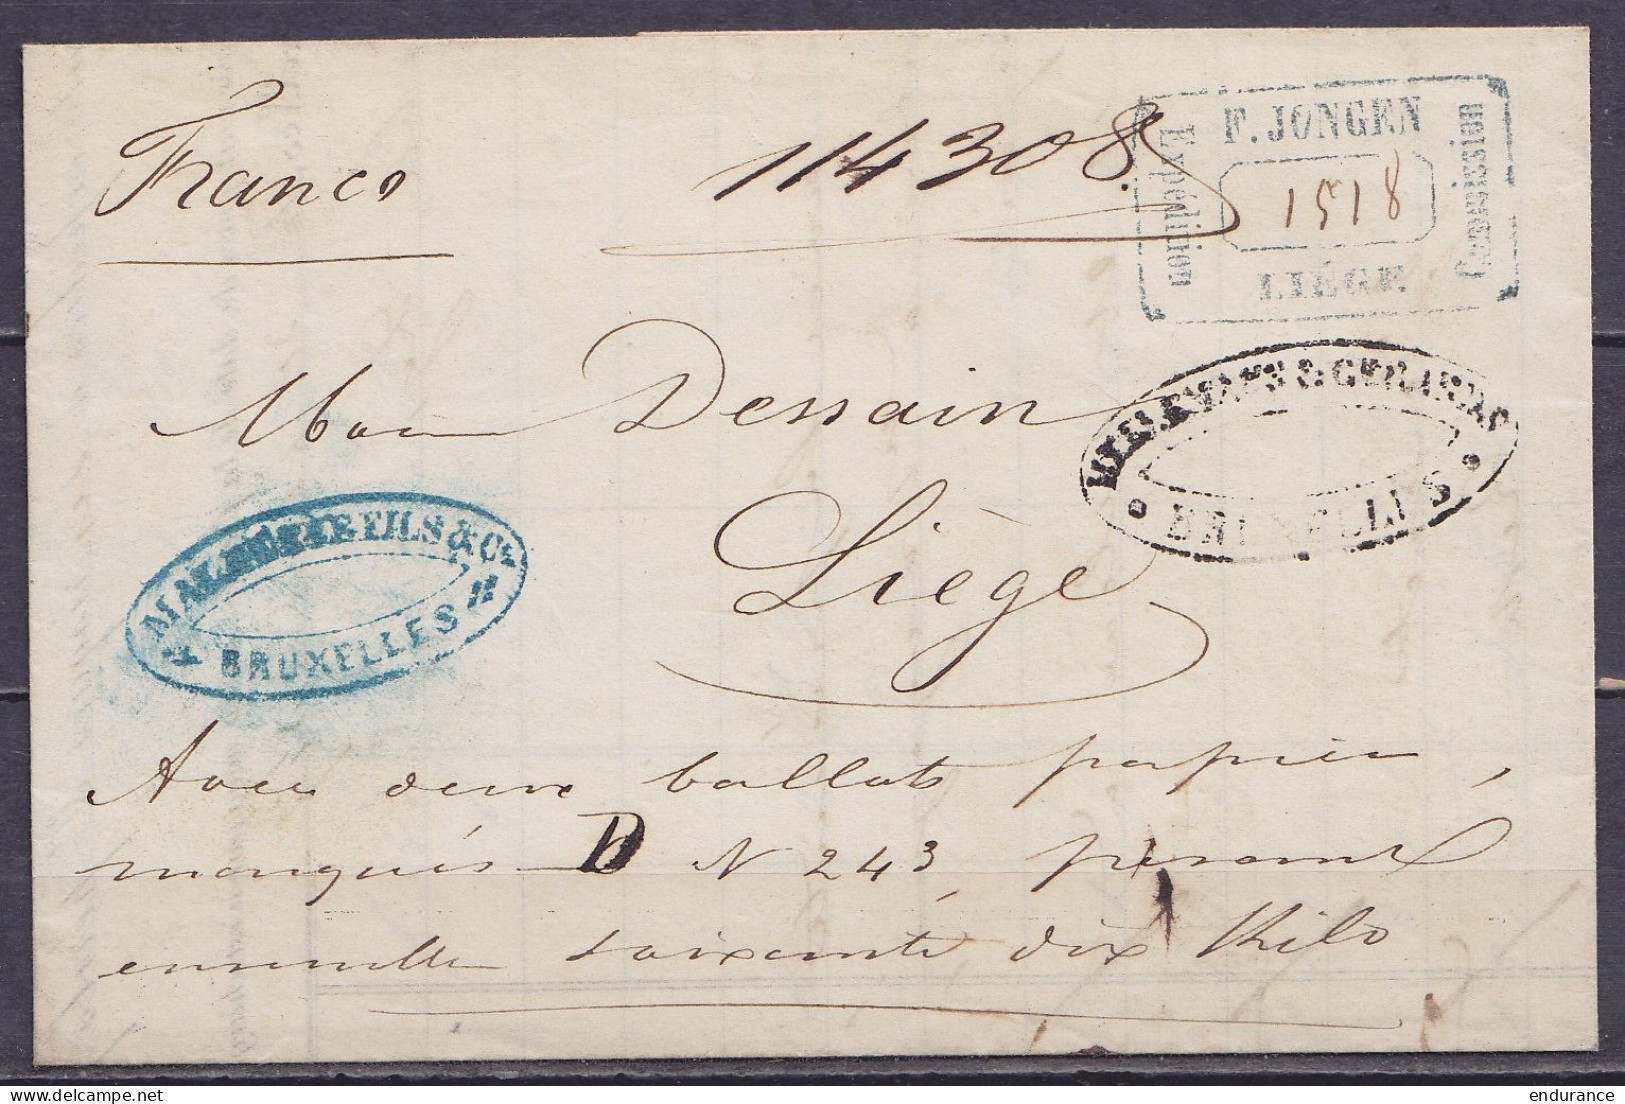 Franco
114308
F. JONGEN
Expedition
1518
Commission
LIÉGE
Dessain
Liège
FILS & Cie
BRUXELLES
BRUXELLES
Avec deux ballots papier,
marqués D N 243, pesant
ensemble soixante dix Kilo
endurance